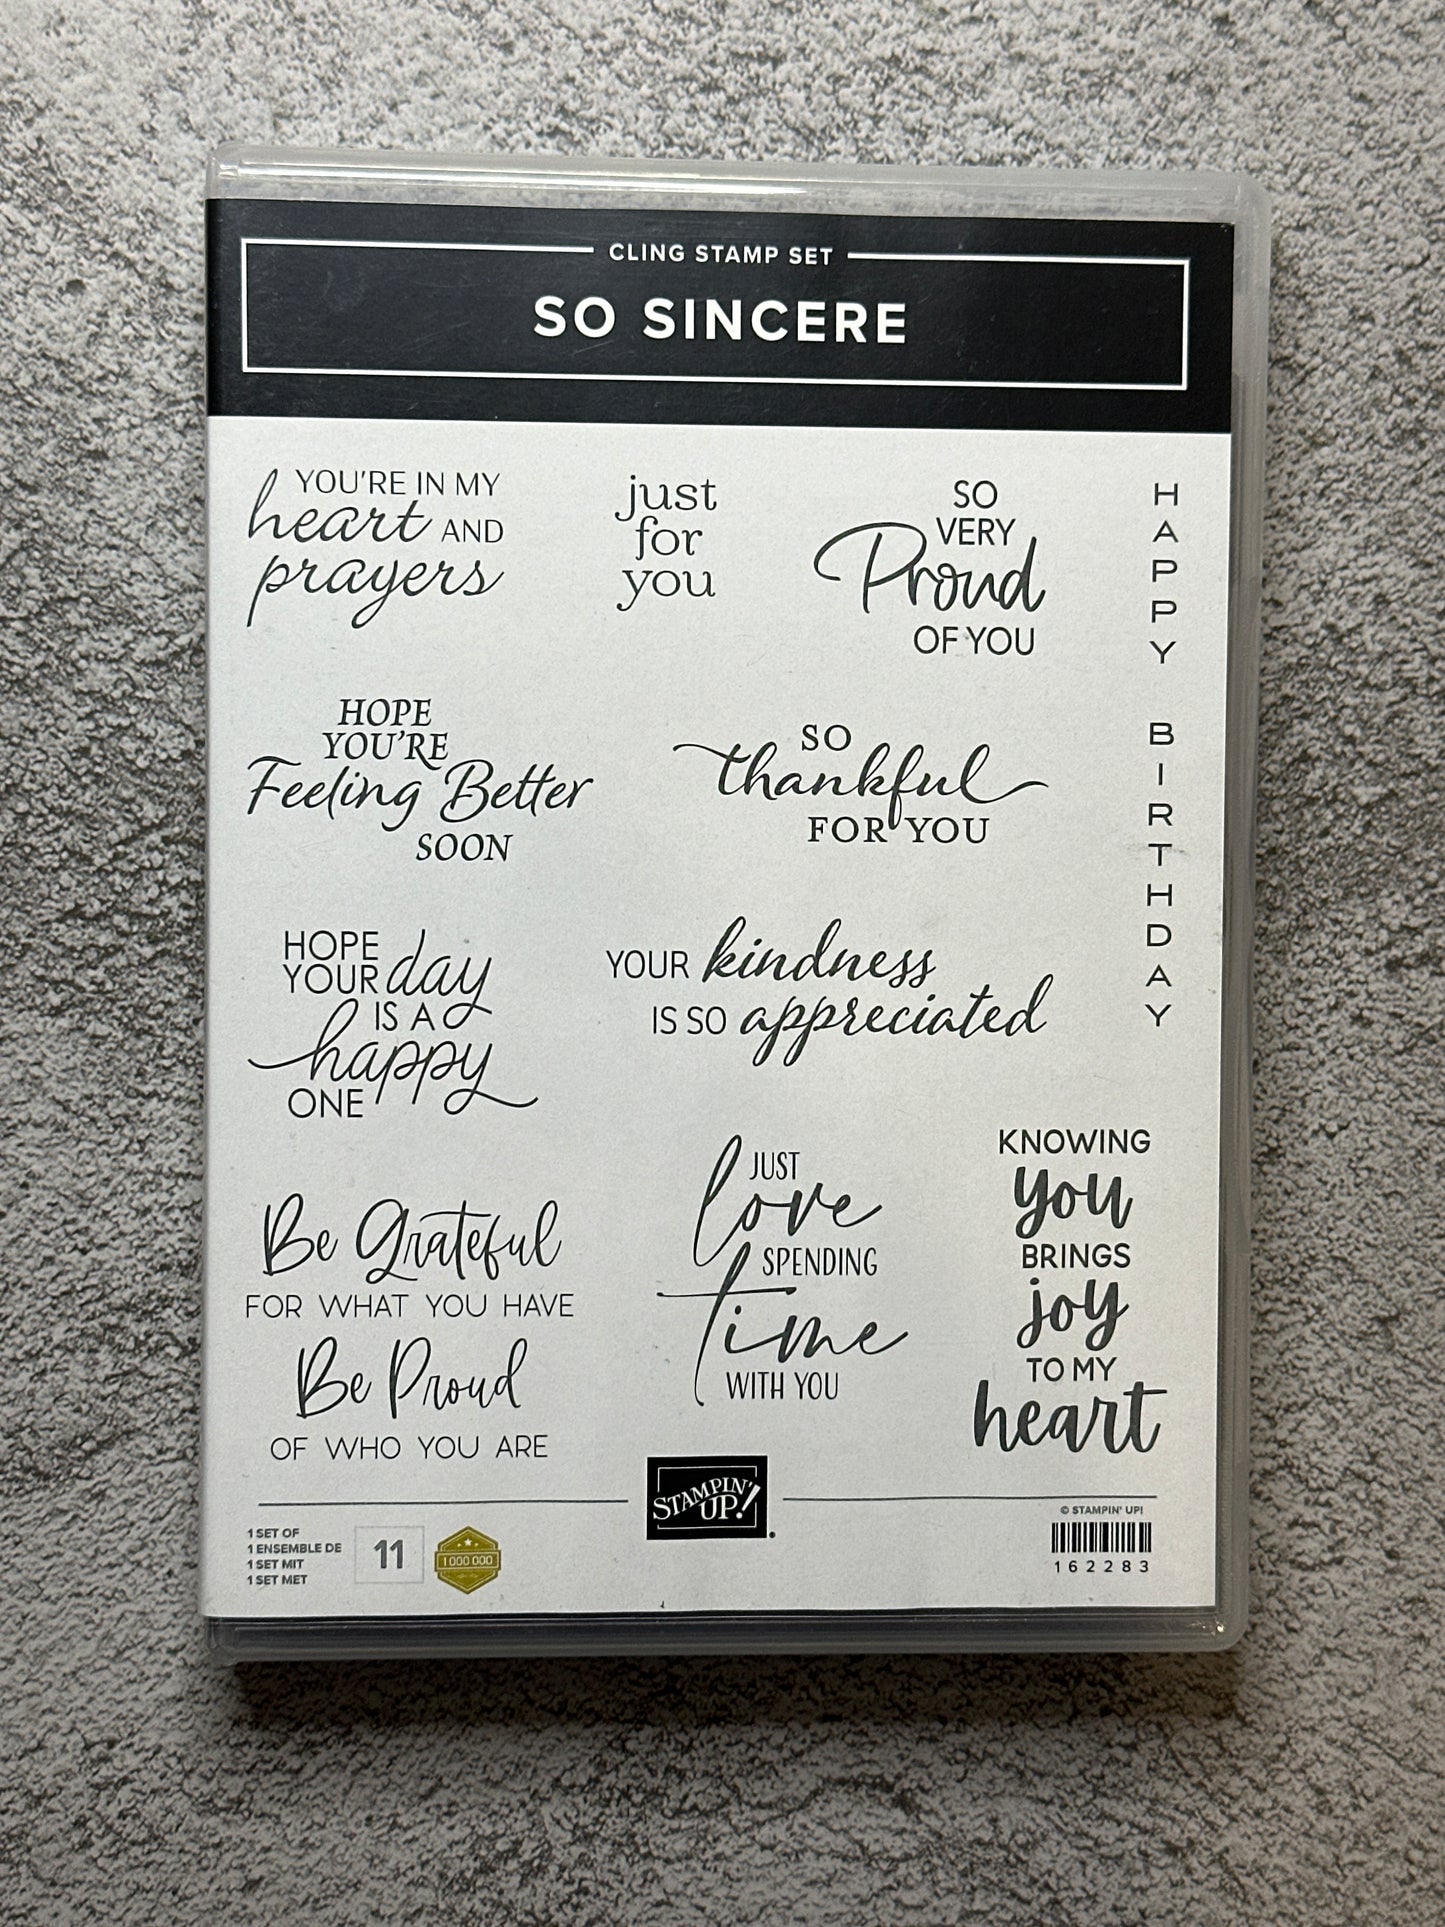 CLING STAMP SET
SO SINCERE
YOU'RE IN MY
heart AND
prayers
just
for
you
SO
VERY
Proud
OF YOU
H
A
P
P
Y
B
I
R
T
H
D
A
Y
HOPE
YOU'RE
Feeling Better
SOON
SO
thankful
FOR YOU
HOPE
YOUR day
IS A
happy
ONE
YOUR kindness
IS SO appreciated
Be Grateful
FOR WHAT YOU HAVE
Be Proud
OF WHO YOU ARE
JUST
love
SPENDING
time
WITH YOU
KNOWING
you
BRINGS
joy
TO MY
heart
1 SET OF
1 ENSEMBLE DE
1 SET MIT
1 SET MET
11
1 000 000
STAMPIN'
UP!
© STAMPIN' UP!
162283